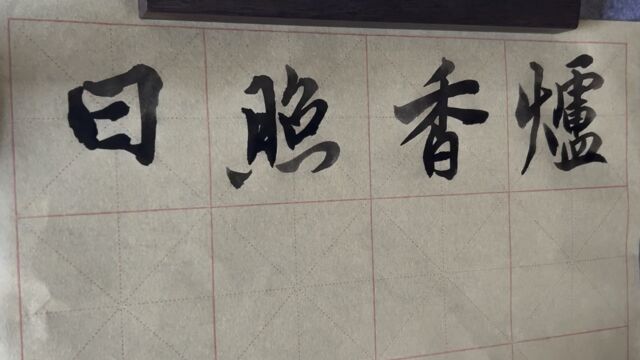 日照香爐